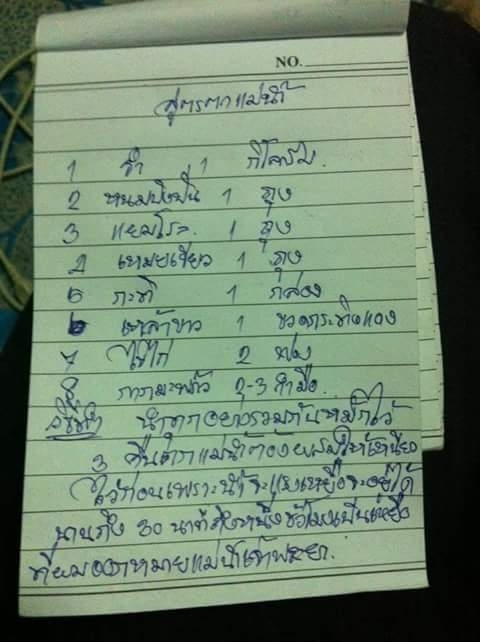 NO.
สูตรตกแม่น้ำ
1 รำ 1 กิโลกรัม.
2 ขนมปังปี่น 1 ถุง
3 แยมโรล. 1 ถุง
4 เหมยเขียว 1 ถุง
5 กะทิ 1 กล่อง
6 เหล้าขาว 1 ขวดกระทิงแดง
7 ไข่ไก่ 2 ฟอง
8 กากมะพร้าว 2-3 กำมือ.
วิธีทำ นำทุกอย่างรวมกันหมักไว้
3 คืนตกแม่น้ำต้องผสมให้เหนียว
ไว้ก่อนเพราะน้ำจะแรงเหยื่อจะอยู่ได้
นานถึง 30 นาทีถึงหนึ่งชั่วโมงเป็นเหยื่อ
ที่ผมออกหมายแม่น้ำเจ้าพระยา.